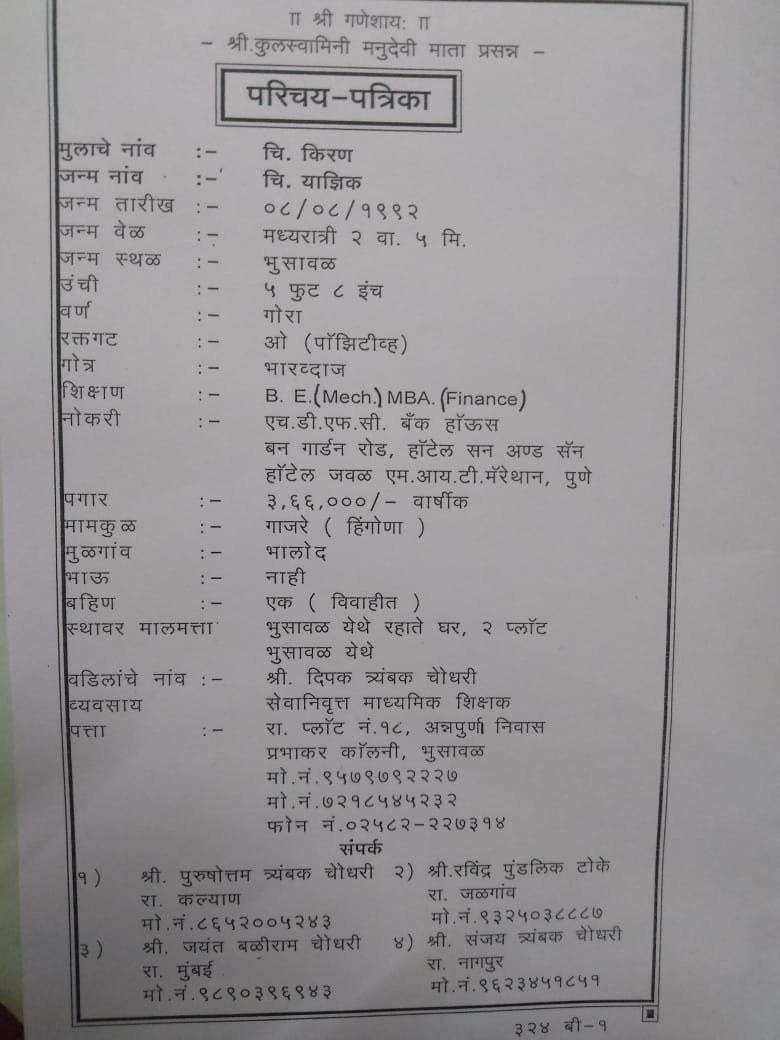 ॥ श्री गणेशाय: ॥
- श्री.कुलस्वामिनी मनुदेवी माता प्रसन्न -
परिचय-पत्रिका
मुलाचे नांव :- चि. किरण
जन्म नांव :- चि. याज्ञिक
जन्म तारीख :- ०८/०८/१९९२
जन्म वेळ :- मध्यरात्री २ वा. ५ मि.
जन्म स्थळ :- भुसावळ
उंची :- ५ फुट ८ इंच
वर्ण :- गोरा
रक्तगट :- ओ (पॉझिटीव्ह)
गोत्र :- भारव्दाज
शिक्षण :- B. E.(Mech.) MBA. (Finance)
नोकरी :- एच.डी.एफ.सी. बँक हॉऊस
बन गार्डन रोड, हॉटेल सन अण्ड सॅन
हॉटेल जवळ एम.आय.टी.मॅरेथान, पुणे
पगार :- ३,६६,०००/- वार्षीक
मामकुळ :- गाजरे ( हिंगोणा )
मुळगांव :- भालोद
भाऊ :- नाही
बहिण :- एक ( विवाहीत )
स्थावर मालमत्ता भुसावळ येथे रहाते घर, २ प्लॉट
भुसावळ येथे
वडिलांचे नांव :- श्री. दिपक त्र्यंबक चौधरी
व्यवसाय सेवानिवृत्त माध्यमिक शिक्षक
पत्ता :- रा. प्लॉट नं.१८, अन्नपुर्णा निवास
प्रभाकर कॉलनी, भुसावळ
मो.नं.९५७९७९२२२७
मो.नं.७२१८५४५२३२
फोन नं.०२५८२-२२७३१४
संपर्क
१) श्री. पुरुषोत्तम त्र्यंबक चौधरी २) श्री.रविंद्र पुंडलिक टोके
रा. कल्याण रा. जळगांव
मो.नं.८६५२००५२४३ मो.नं.९३२५०३८८८७
३) श्री. जयंत बळीराम चौधरी ४) श्री. संजय त्र्यंबक चौधरी
रा. मुंबई रा. नागपुर
मो.नं.९८९०३९६९४३ मो.नं.९६२३४५१८५१
३२४ बी-१